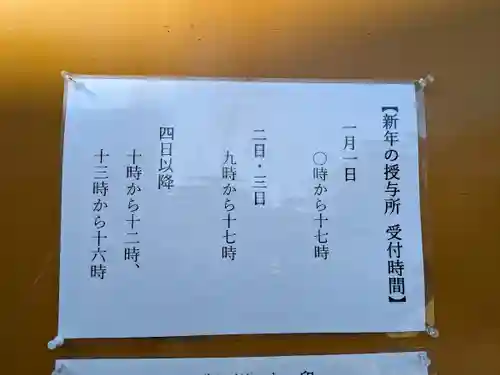 【新年の授与所 受付時間】
一月一日
〇時から十七時
二日・三日
九時から十七時
四日以降
十時から十二時、
十三時から十六時